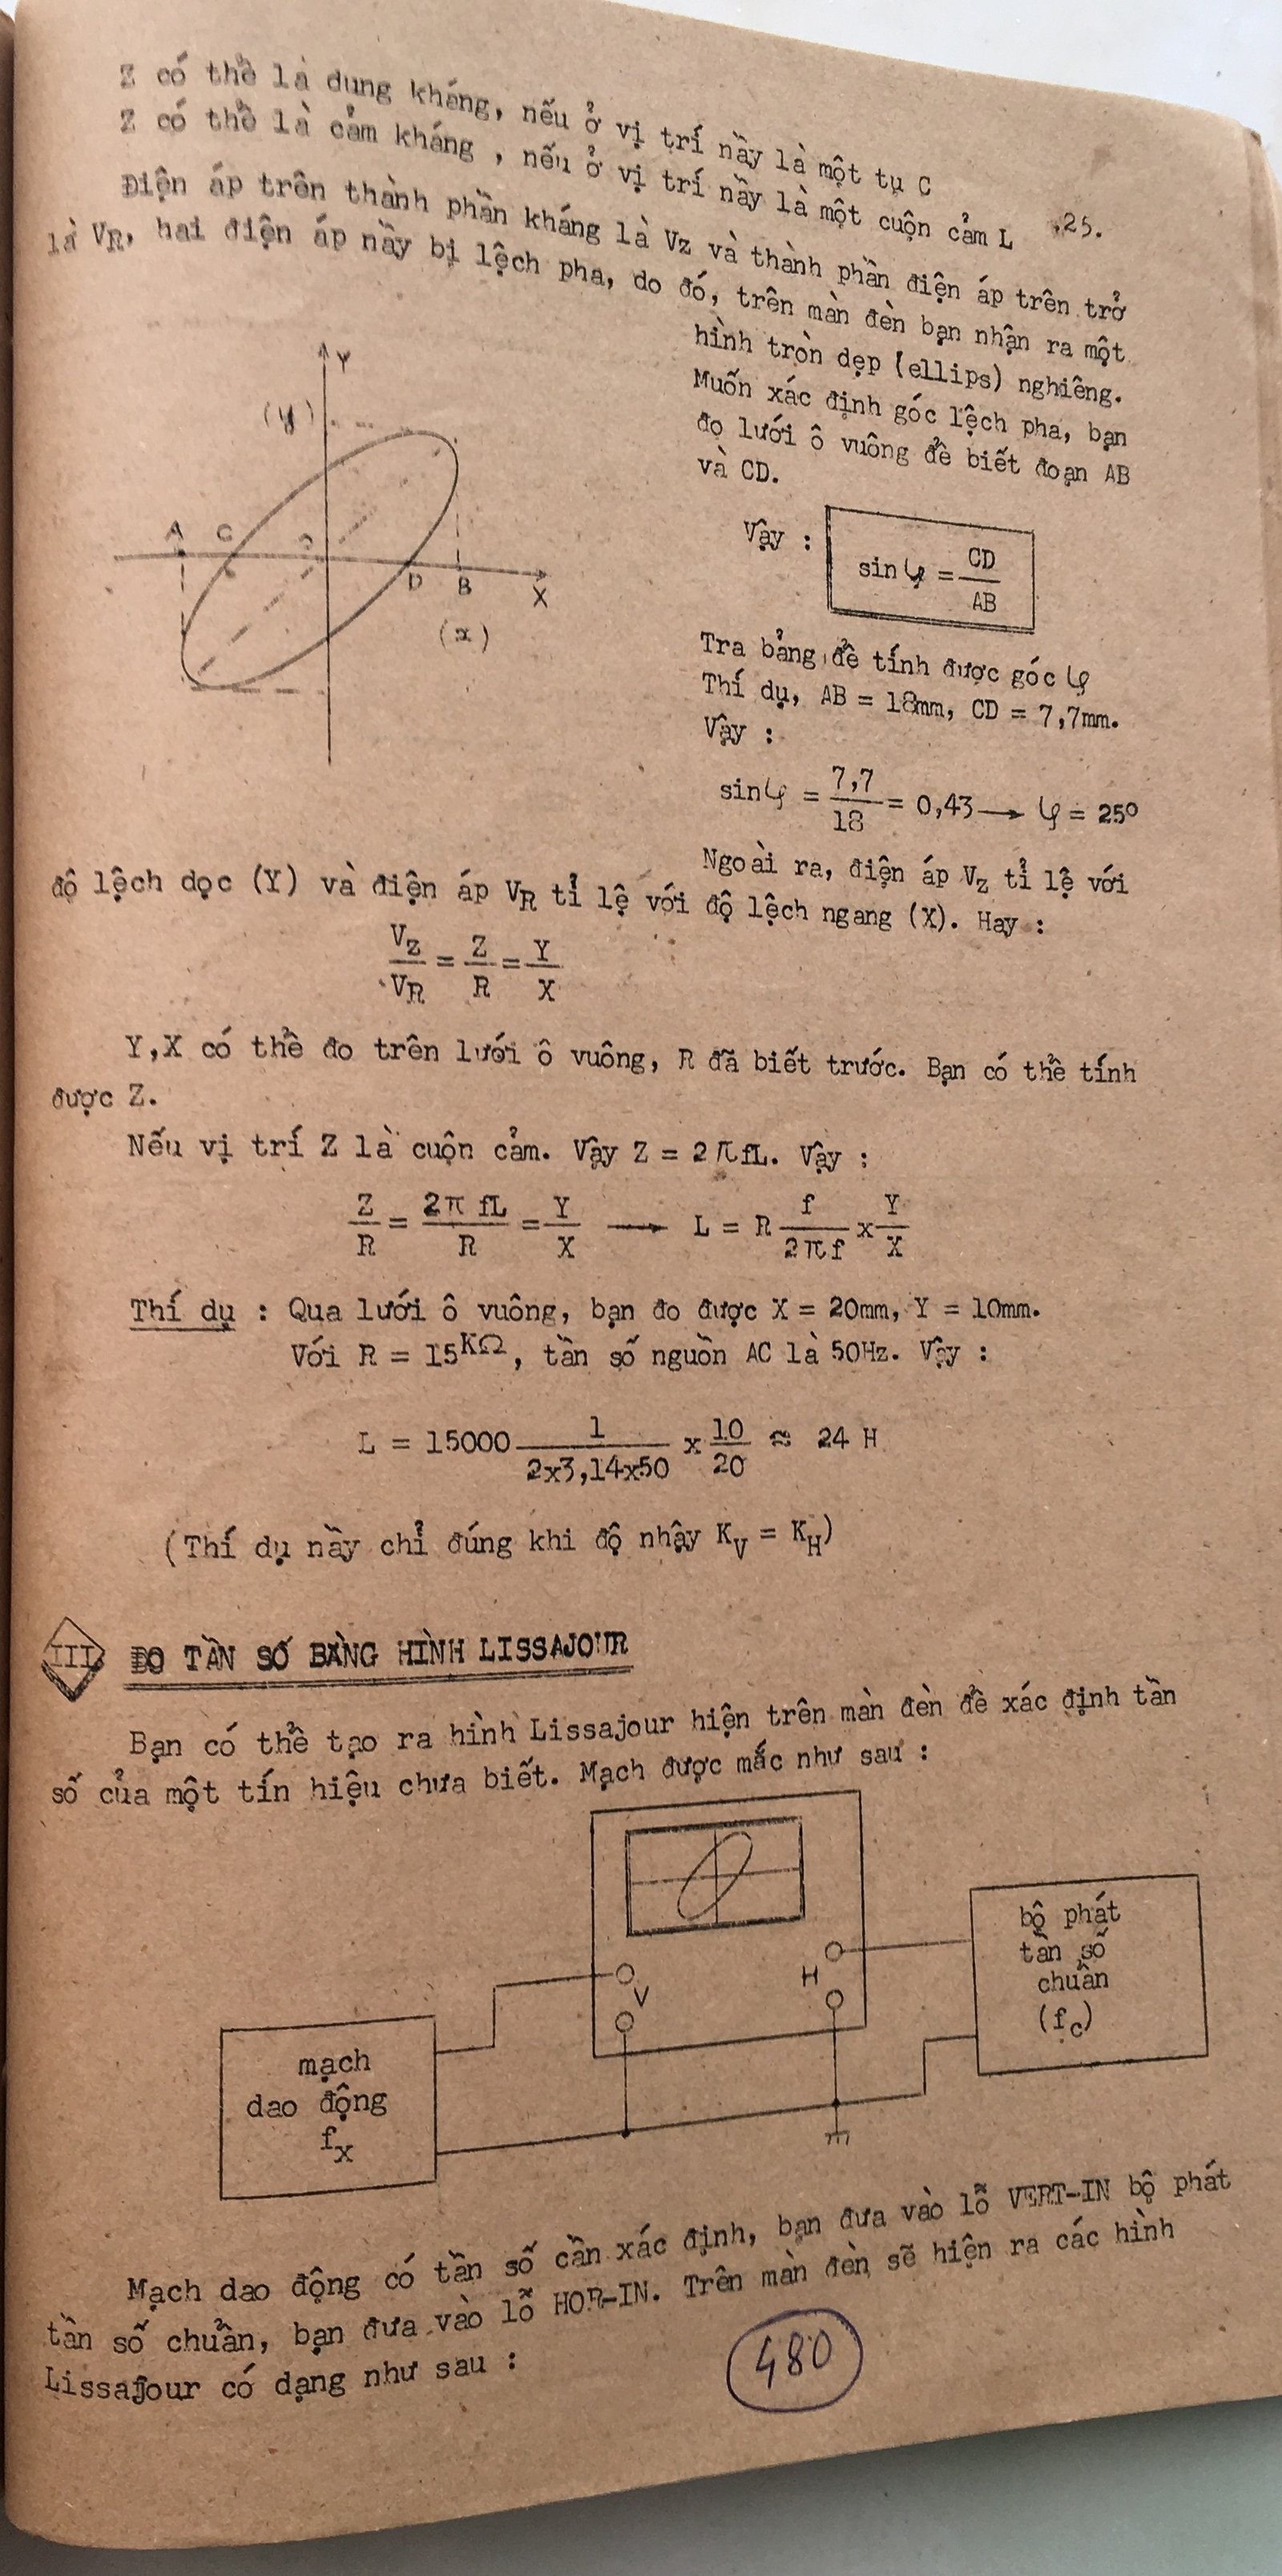 Z có thể là dung kháng, nếu ở vị trí nầy là một tụ C
Z có thể là cảm kháng , nếu ở vị trí nầy là một cuộn cảm L ,25.
Điện áp trên thành phần kháng là VZ và thành phần điện áp trên trở
là VR, hai điện áp nầy bị lệch pha, do đó, trên màn đèn bạn nhận ra một
hình tròn dẹp (ellips) nghiêng.
Muốn xác định góc lệch pha, bạn
đo lưới ô vuông để biết đoạn AB
và CD.
Y
(y)
A C
D B X
(x)
Vậy : sin φ = CD/AB
Tra bảng để tính được góc φ
Thí dụ, AB = 18mm, CD = 7,7mm.
Vậy :
sin φ = 7,7/18 = 0,43 → φ = 25°
Ngoài ra, điện áp VZ tỉ lệ với
độ lệch dọc (Y) và điện áp VR tỉ lệ với độ lệch ngang (X). Hay :
VZ/VR = Z/R = Y/X
Y,X có thể đo trên lưới ô vuông, R đã biết trước. Bạn có thể tính
được Z.
Nếu vị trí Z là cuộn cảm. Vậy Z = 2πfL. Vậy :
Z/R = 2π fL/R = Y/X → L = R f/2πf x Y/X
Thí dụ : Qua lưới ô vuông, bạn đo được X = 20mm, Y = 10mm.
Với R = 15KΩ, tần số nguồn AC là 50Hz. Vậy :
L = 15000 1/2x3,14x50 x 10/20 ≈ 24 H
(Thí dụ nầy chỉ đúng khi độ nhậy KV = KH)
III ĐO TẦN SỐ BẰNG HÌNH LISSAJOUR
Bạn có thể tạo ra hình Lissajour hiện trên màn đèn để xác định tần
số của một tín hiệu chưa biết. Mạch được mắc như sau :
bộ phát
tần số
chuẩn
(fc)
H
V
mạch
dao động
fx
Mạch dao động có tần số cần xác định, bạn đưa vào lỗ VERT-IN bộ phát
tần số chuẩn, bạn đưa vào lỗ HOR-IN. Trên màn đèn sẽ hiện ra các hình
Lissajour có dạng như sau :
480